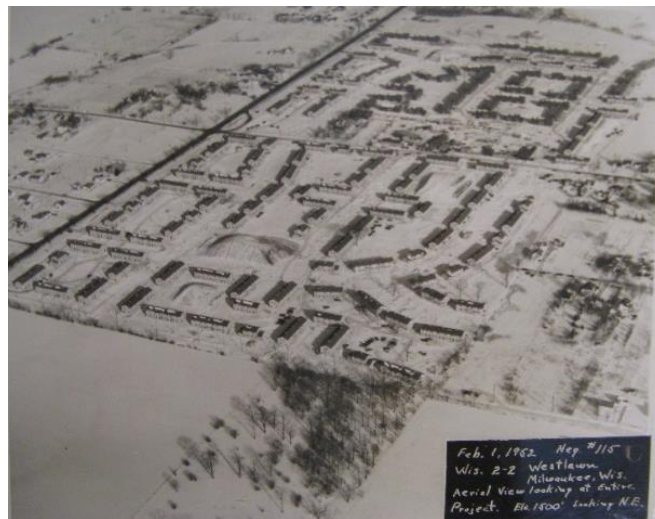 Feb. 1, 1952 Neg #115
Wis. 2-2 Westlawn
Milwaukee, Wis.
Aerial View looking at Entire
Project. Ele. 1500' Looking N.E.